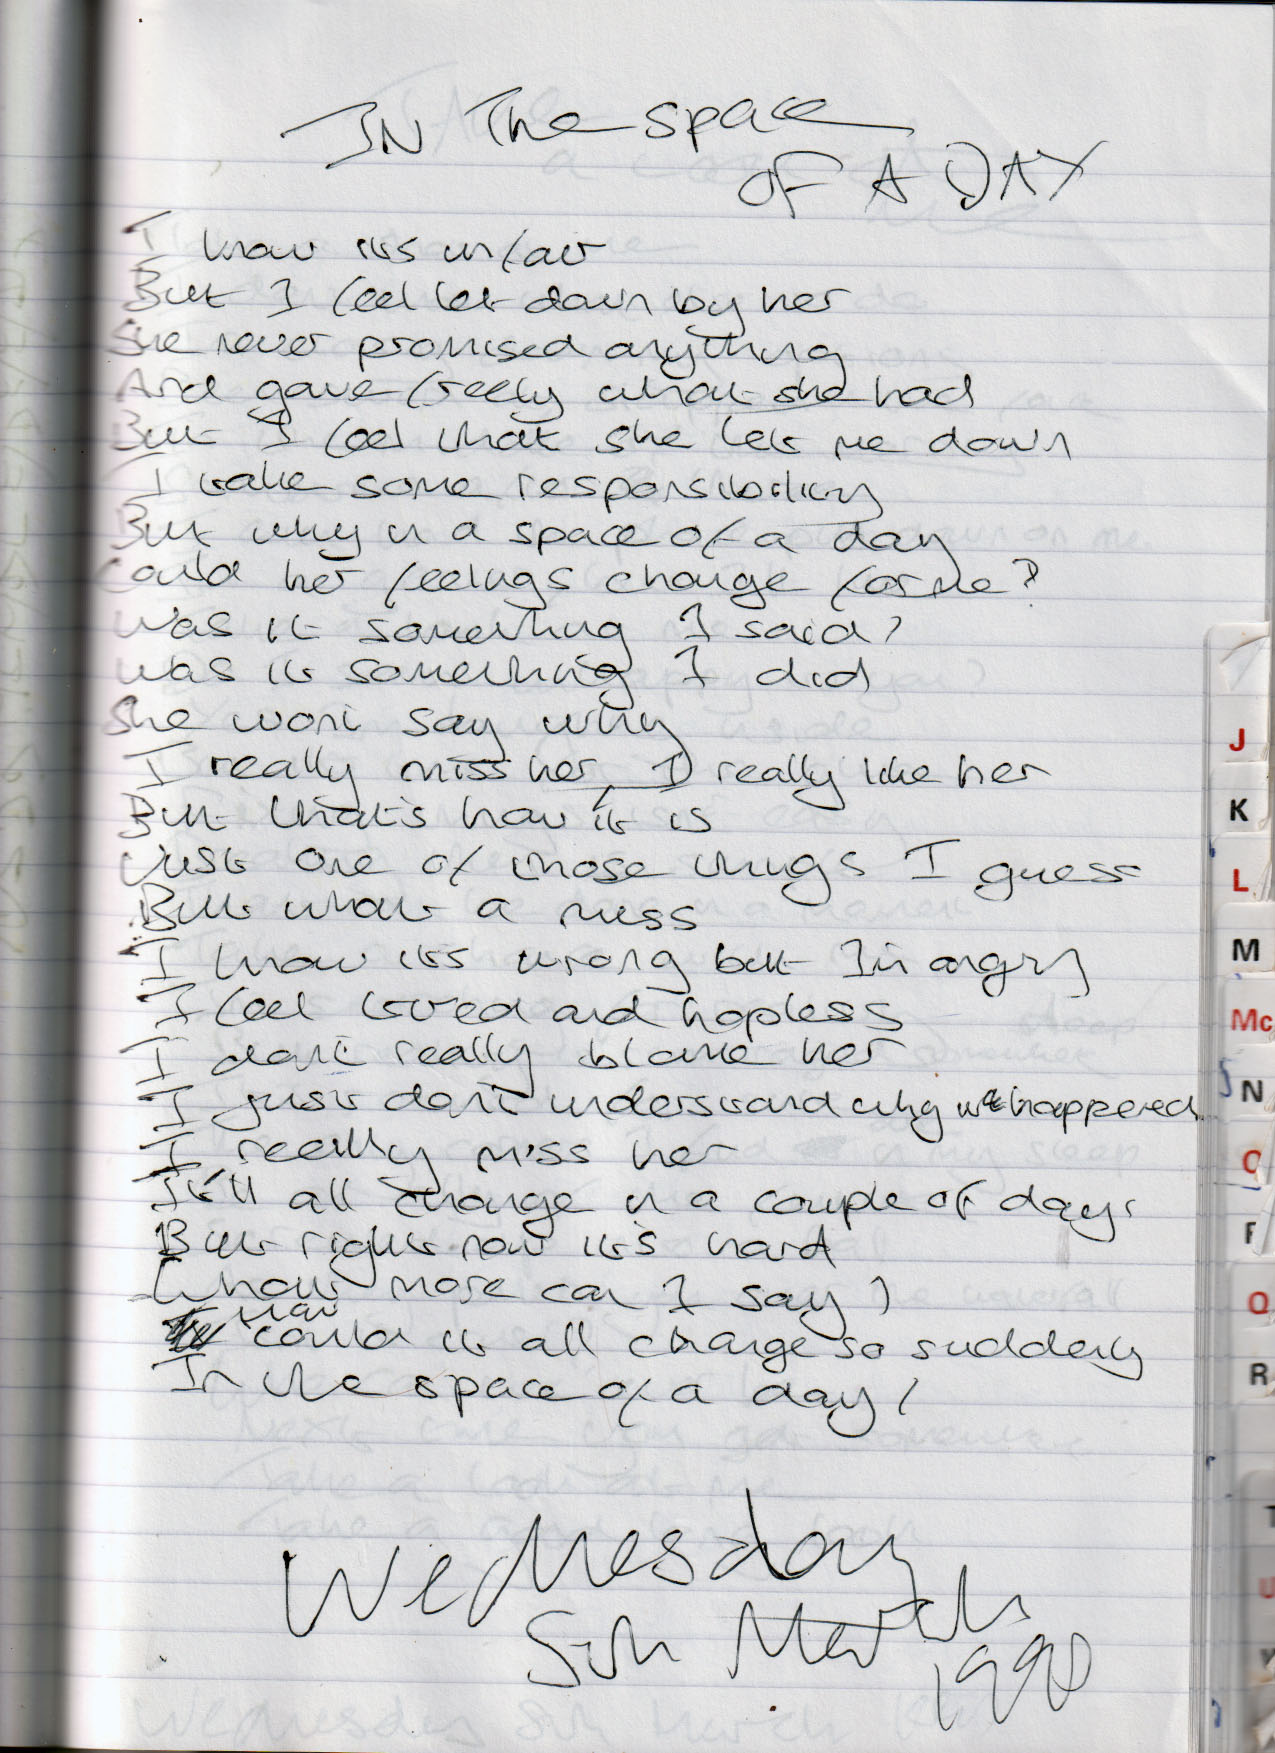 IN The space
OF A DAY
I know its unfair
But I feel let down by her
She never promised anything
And gave freely what she had
But I feel that she let me down
I take some responsibility
But why in a space of a day
Could her feelings change for me?
Was it something I said?
Was it something I did
She wont say why
I really miss her, I really like her
But that's how it is
Just one of those things I guess
But what a mess
I know its wrong but Im angry
I feel tired and hopless
I dont really blame her
I just dont understand why it happened
I really miss her
It'll all change in a couple of days
But right now it's hard
What more can I say?
How could it all change so suddenly
In the space of a day?
Wednesday
5th March
1990
J
K
L
M
Mc
N
O
P
Q
R
T
U